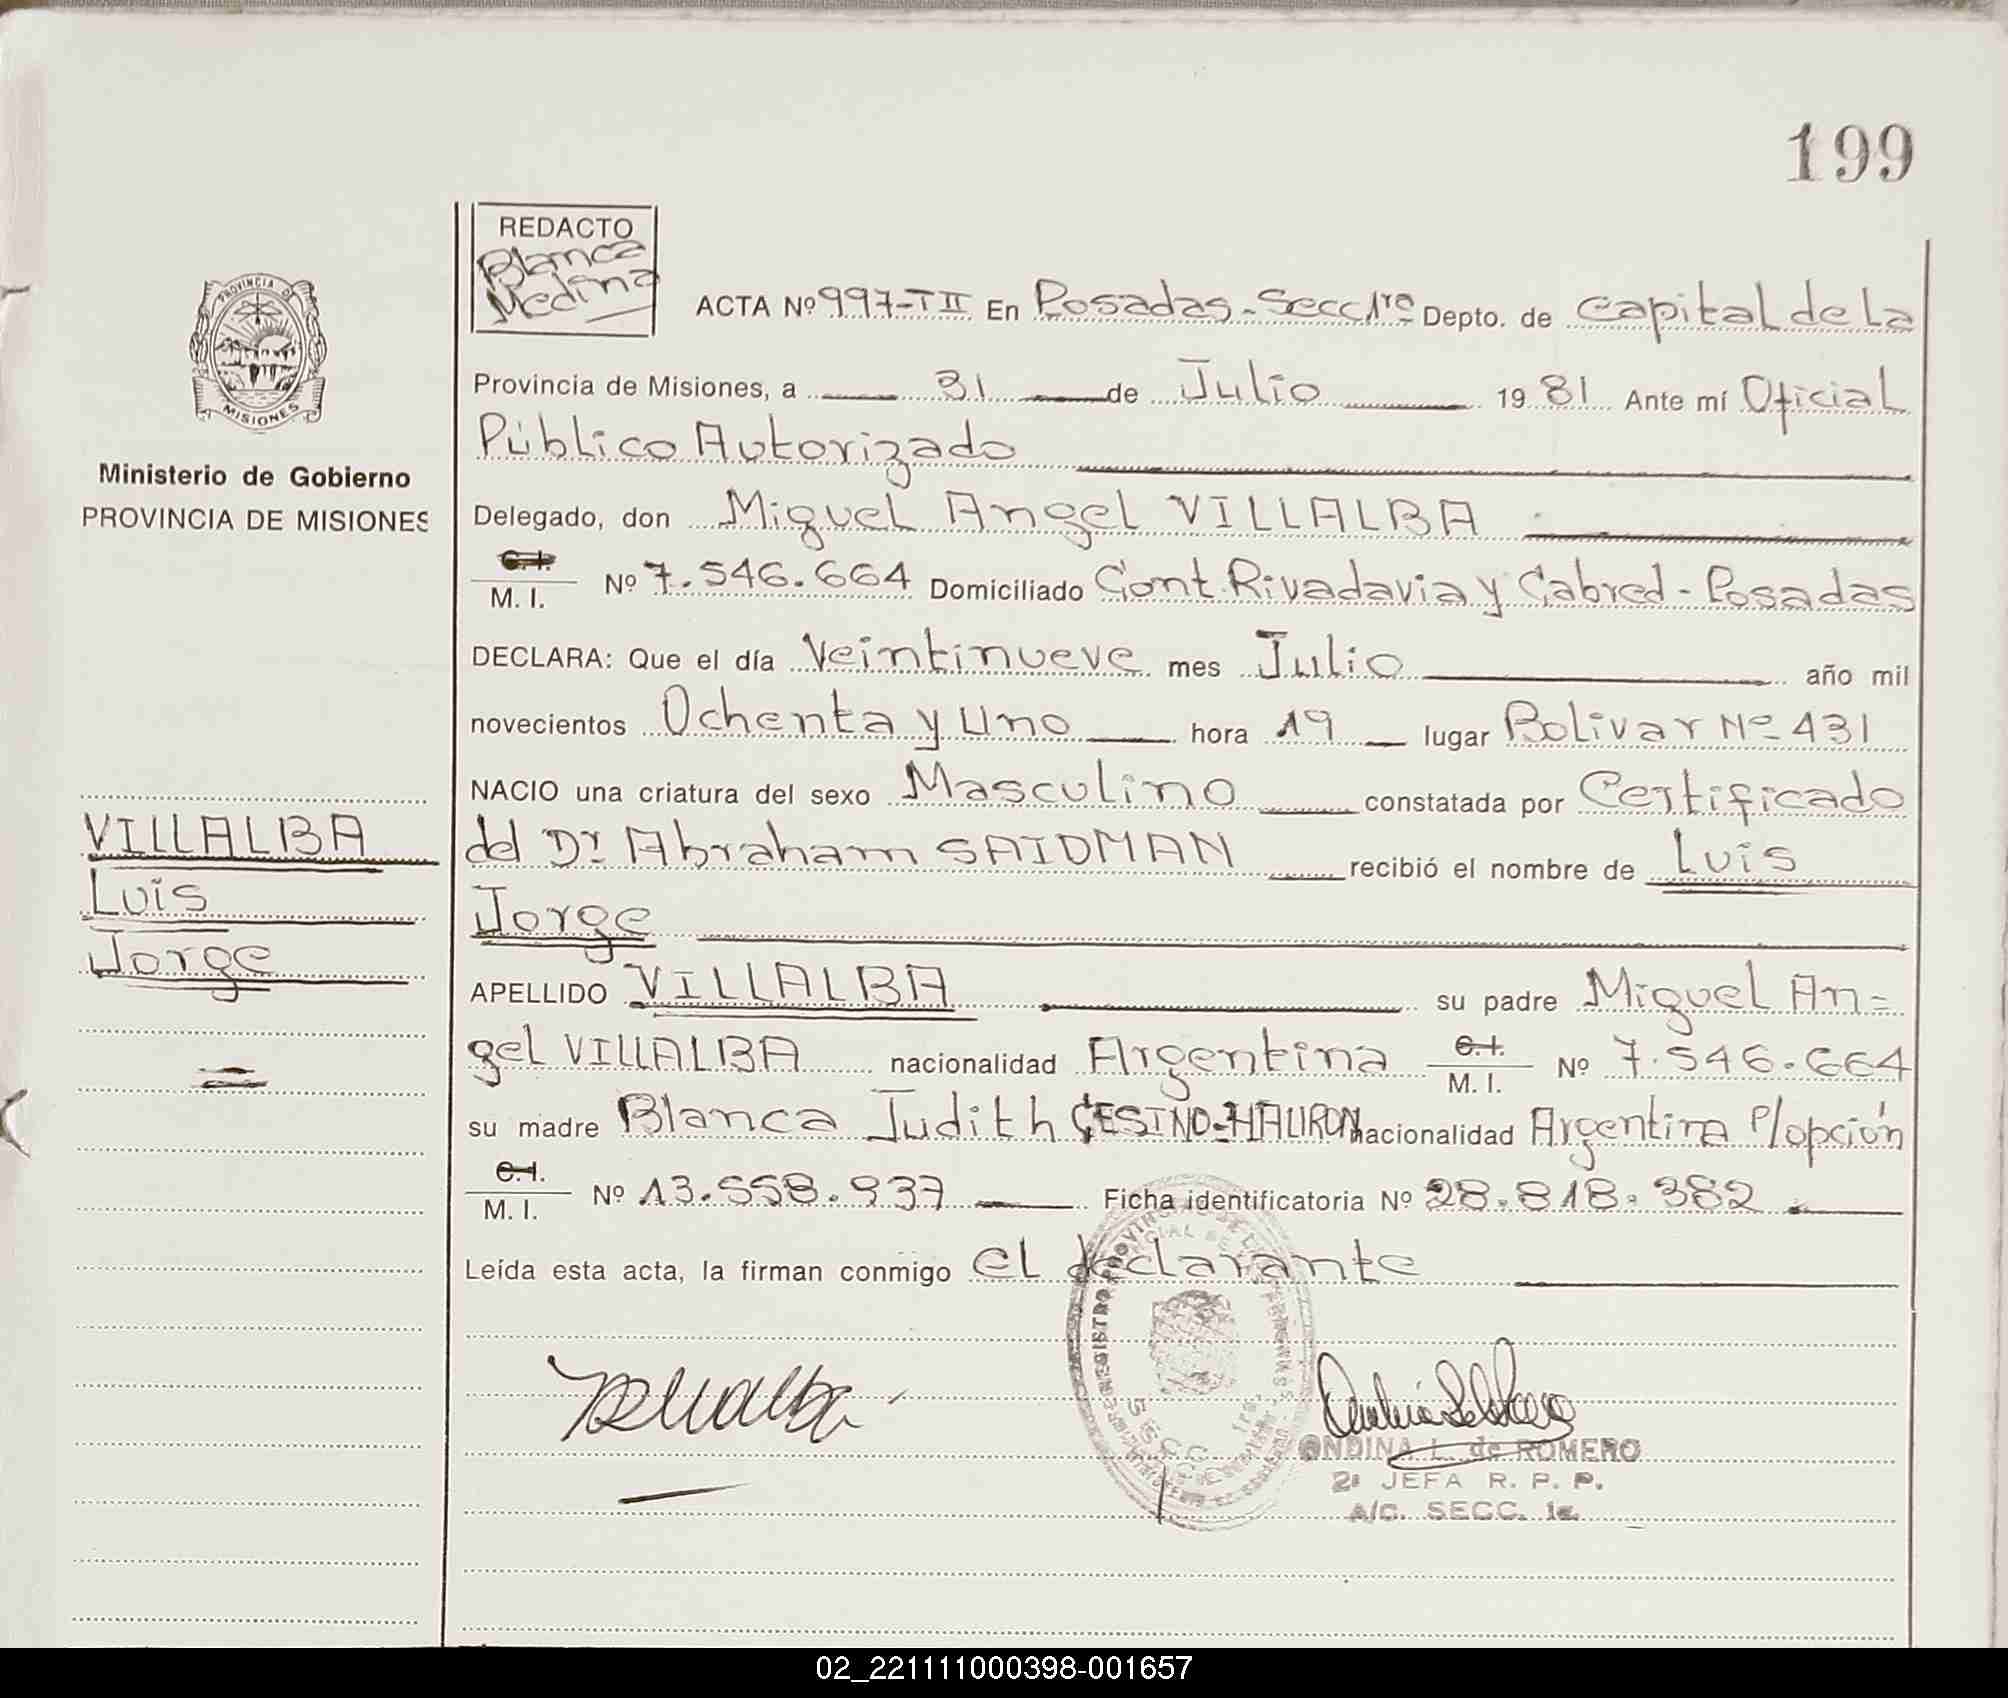 199
REDACTO
Blanca
Medina
PROVINCIA DE
MISIONES
Ministerio de Gobierno
PROVINCIA DE MISIONES
VILLALBA
Luis
Jorge
ACTA Nº 997-TII En Posadas-Secc 1ra Depto. de Capital de La
Provincia de Misiones, a 31 de Julio 1981 Ante mí Oficial
Público Autorizado
Delegado, don Miguel Angel VILLALBA
C.I.
M. I. Nº 7.546.664 Domiciliado Cont. Rivadavia y Cabred - Posadas
DECLARA: Que el día Veintinueve mes Julio año mil
novecientos Ochenta y Uno hora 19 lugar Bolivar Nº 431
NACIO una criatura del sexo Masculino constatada por Certificado
del Dr Abraham SAIDMAN recibió el nombre de Luis
Jorge
APELLIDO VILLALBA su padre Miguel An=
gel VILLALBA nacionalidad Argentina C.I. M. I. Nº 7.546.664
su madre Blanca Judith CESINO-HAURON nacionalidad Argentina P/opción
C.I.
M. I. Nº 13.558.937 Ficha identificatoria Nº 28.818.382
Leída esta acta, la firman conmigo el declarante
ONDINA L. de ROMERO
2ª JEFA R. P. P.
A/C. SECC. 1ª.
02_221111000398-001657